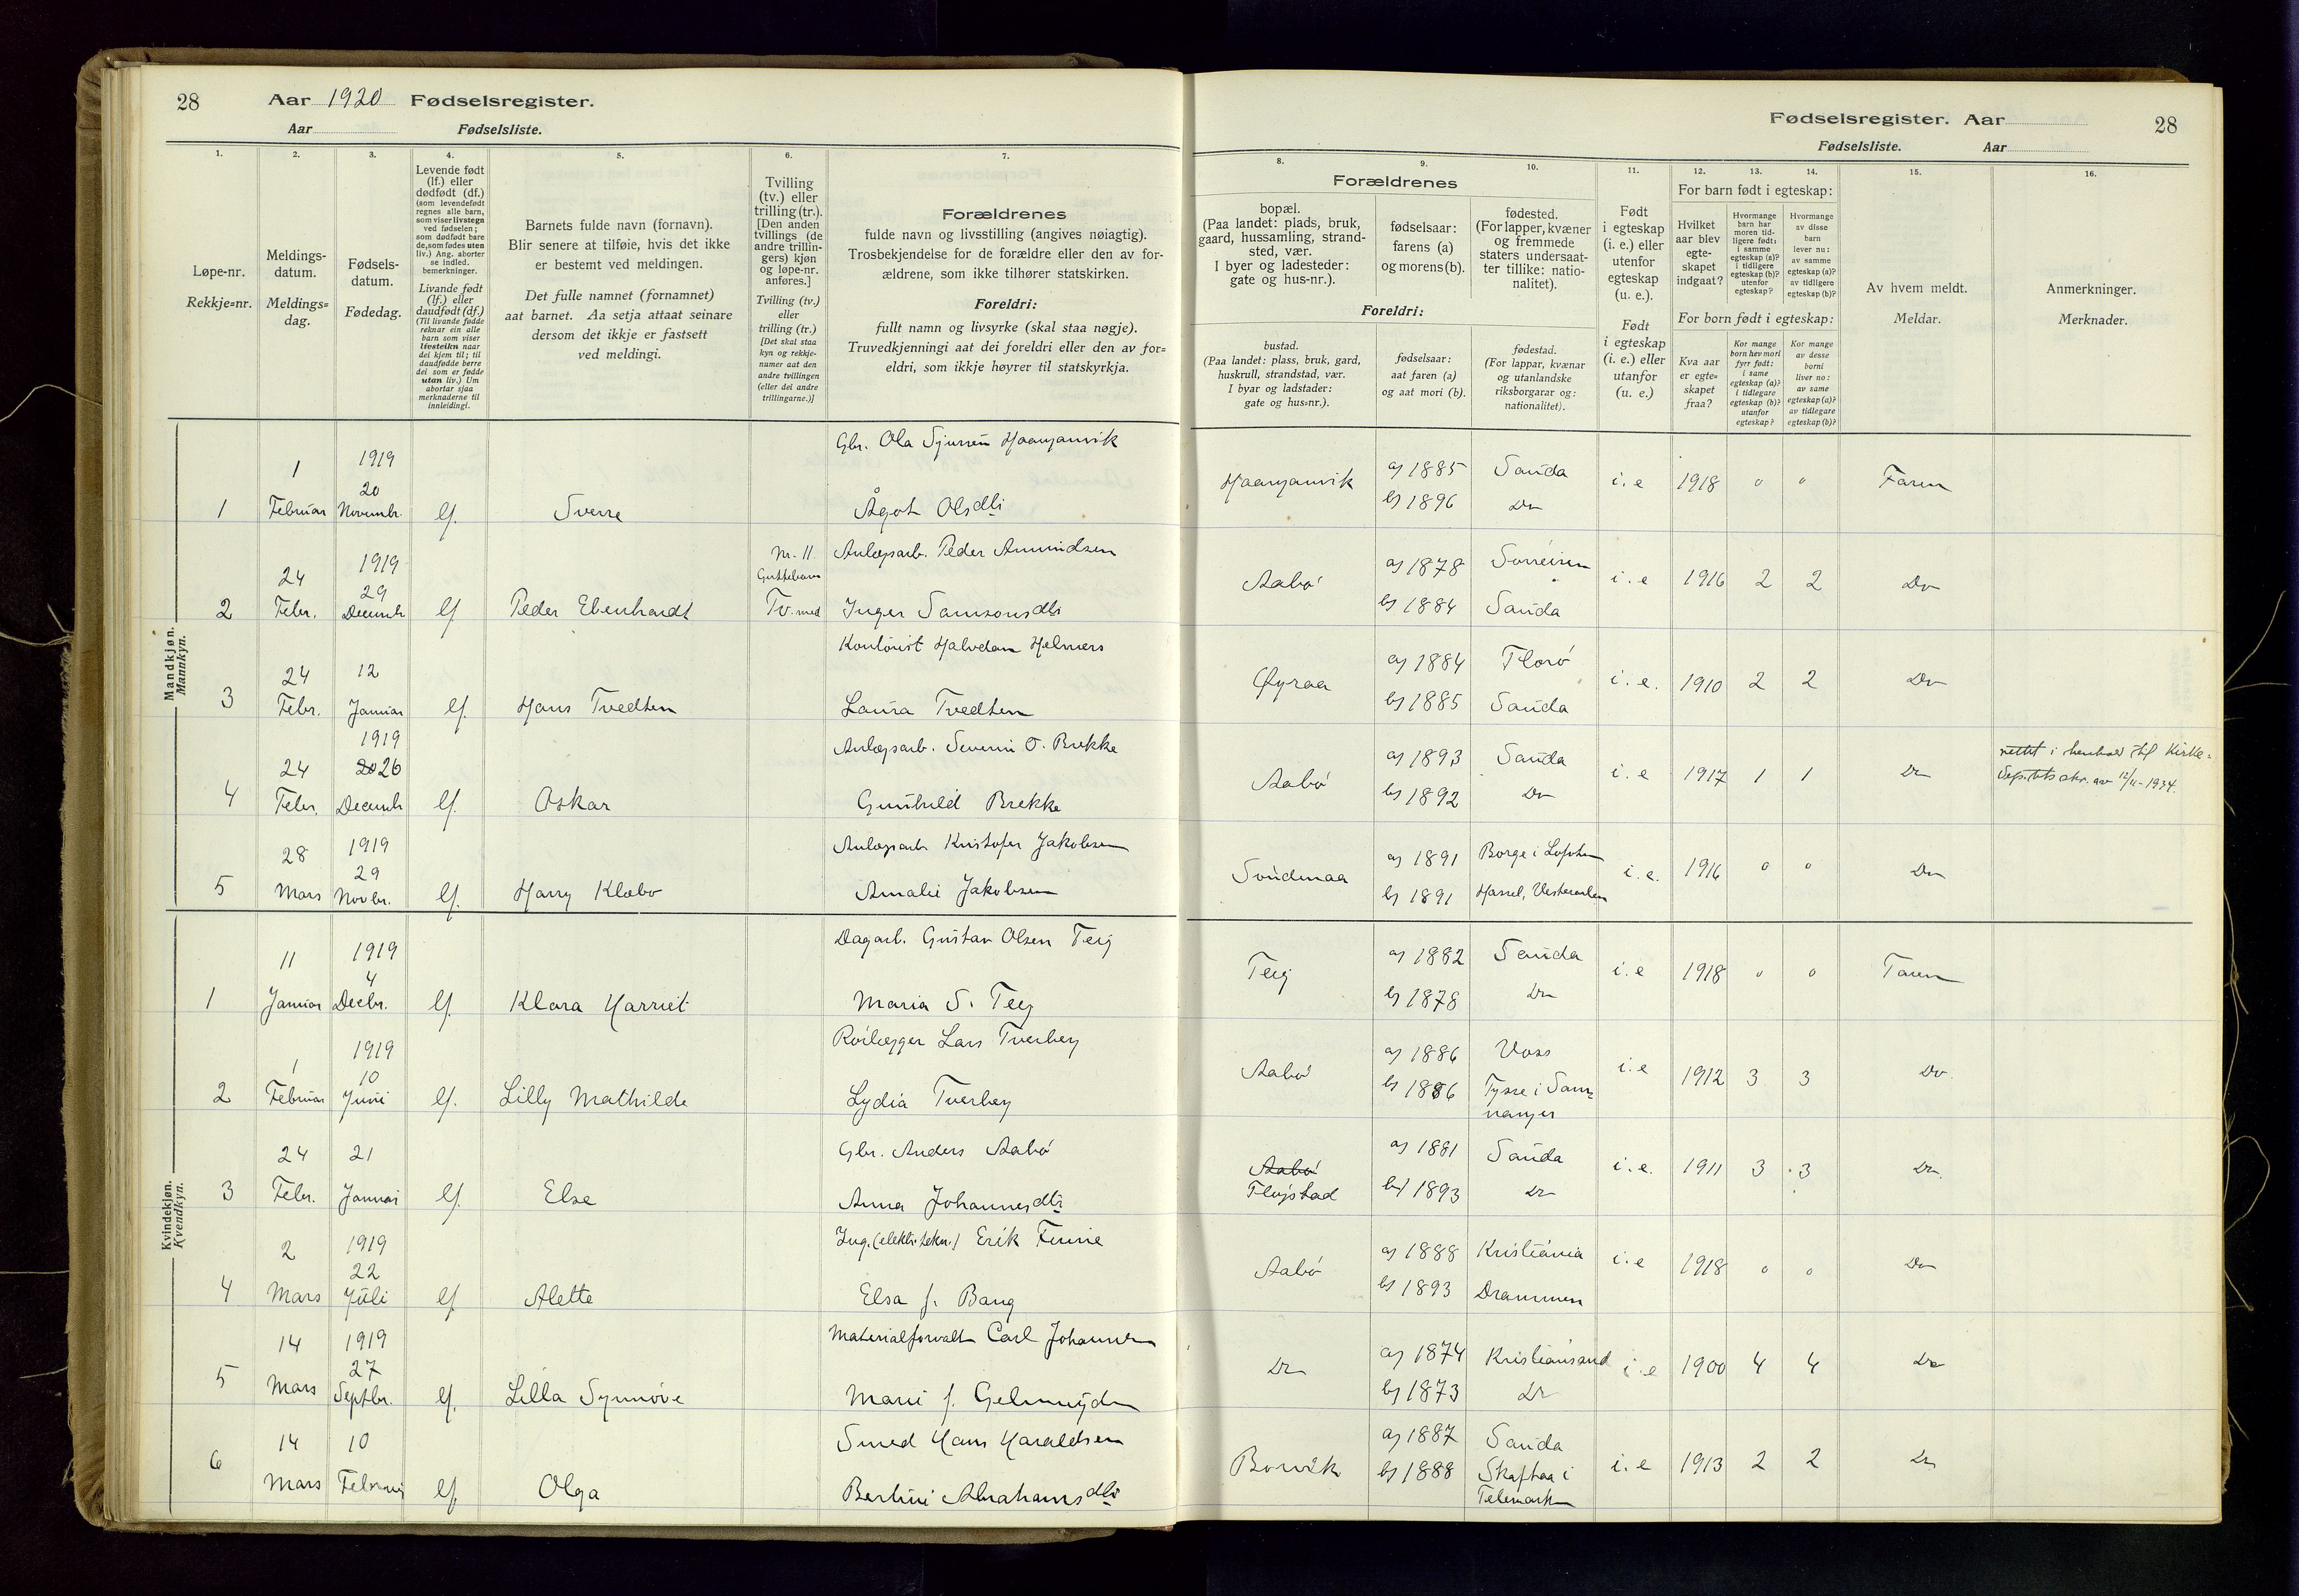 28 Aar 1920 Fødselsregister.
Aar Fødselsliste.
Fødselsregister. Aar 28
Fødselsliste. Aar
1. 2. 3. 4. 5. 6. 7.
Løpe-nr.
Rekkje-nr.
Meldings-
datum.
Meldings-
dag.
Fødsels-
datum.
Fødedag.
Levende født
(lf.) eller
dødfødt (df.)
(som levendefødt
regnes alle barn,
som viser livstegn
ved fødselen;
som dødfødt bare
de, som fødes uten
liv.) Ang. aborter
se indled.
bemerkninger.
Livande født
(lf.) eller
daudfødt (df.)
(Til livande fødde
reknar ein alle
barn som viser
livsteikn naar
dei kjem til; til
daudfødde berre
dei som er fødde
utan liv.) Um
abortar sjaa
merknaderne til
innleidingi.
Barnets fulde navn (fornavn).
Blir senere at tilføie, hvis det ikke
er bestemt ved meldingen.
Det fulle namnet (fornamnet)
aat barnet. Aa setja attaat seinare
dersom det ikkje er fastsett
ved meldingi.
Tvilling
(tv.) eller
trilling (tr.).
[Den anden
tvillings (de
andre trillin-
gers) kjøn
og løpe-nr.
anføres.]
Tvilling (tv.)
eller
trilling (tr.)
[Det skal staa
kyn og rekkje-
numer aat den
andre tvillingen
(eller dei andre
trillingarne.)]
Forældrenes
fulde navn og livsstilling (angives nøiagtig).
Trosbekjendelse for de forældre eller den av for-
ældrene, som ikke tilhører statskirken.
Foreldri:
fullt namn og livsyrke (skal staa nøgje).
Truvedkjenningi aat dei foreldri eller den av for=
eldri, som ikkje høyrer til statskyrkja.
8. 9. 10. 11. 12. 13. 14. 15. 16.
Forældrenes
bopæl.
(Paa landet: plads, bruk,
gaard, hussamling, strand-
sted, vær.
I byer og ladesteder:
gate og hus-nr.).
fødselsaar:
farens (a)
og morens (b).
fødested.
(For lapper, kvæner
og fremmede
staters undersaat-
ter tillike: natio-
nalitet).
Foreldri:
bustad.
(Paa landet: plass, bruk, gard,
huskrull, strandstad, vær.
I byar og ladstader:
gate og hus-nr.).
fødselsaar:
aat faren (a)
og aat mori (b).
fødestad.
(For lappar, kvænar
og utanlandske
riksborgarar og:
nationalitet).
Født
i egteskap
(i. e.) eller
utenfor
egteskap
(u. e.).
Født
i egteskap
(i. e.) eller
utanfor
(u. e.)
For barn født i egteskap:
Hvilket
aar blev
egte-
skapet
indgaat?
Hvormange
barn har
moren tid-
ligere født:
i samme
egteskap (a)?
i tidligere
egteskap (b)?
utenfor
egteskap?
Hvormange
av disse
barn
lever nu:
av samme
egteskap (a)?
av tidligere
egteskap (b)?
For born født i egteskap:
Kva aar
er egte-
skapet
fraa?
Kor mange
born hev mori
fyrr født:
i same
egteskap (a)?
i tidlegare
egteskap (b)?
utanfor
egteskap?
Kor mange
av desse
borni
liver no:
av same
egteskap (a)?
av tidlegare
egteskap (b)?
Av hvem meldt.
Meldar.
Anmerkninger.
Merknader.
Mandkjøn.
Mannkyn.
1 1 Februar 1919 20 Novembr. lf. Sverre Gbr. Ola Sjursen Haaganvik
Ågot Olsdtr Haaganvik a) 1885 b) 1896 Sauda Do i. e 1918 0 0 Faren
2 24 Febr. 1919 29 Decembr lf Peder Ebenhardt Nr. 11. Guttebarn Tv. med Anlægsarb. Peder Amundsen
Inger Samsonsdtr Aabø a) 1878 b) 1884 Sørreisen Sauda i. e 1916 2 2 Do
3 24 Febr. 12 Januar lf. Hans Tvedten Kontorist Halvdan Helmers
Laura Tvedten Øyraa a) 1884 b) 1885 Florø Sauda i. e. 1910 2 2 Do
4 24 Febr. 1919 20 26 Decembr lf. Oskar Anlægsarb. Severin O. Brekke
Gunhild Brekke Aabø a) 1893 b) 1892 Sauda Do i. e 1917 1 1 Do rettet i henhold til Kirke=
Dep.tets skr. av 12/11-1934.
5 28 Mars 1919 29 Novbr. lf. Harry Klæbo Anlægsarb Kristofer Jakobsen
Amalie Jakobsen Søndenaa a) 1891 b) 1891 Borge i Lofoten Hassel, Vesteraalen i. e. 1916 0 0 Do
Kvindekjøn.
Kvendkyn.
1 11 Januar 1919 4 Decbr. lf. Klara Harriet Dagarb. Gustav Olsen Teig
Maria S. Teig Teig a) 1882 b) 1878 Sauda Do i. e 1918 0 0 Faren
2 1 Februar 1919 10 Juni lf. Lilly Mathilde Rørlægger Lars Tverberg
Lydia Tverberg Aabø a) 1886 b) 1886 Voss Tysse i Sam=
nanger i. e 1912 3 3 Do.
3 24 Febr. 21 Januar lf. Else Gbr. Anders Aabø
Anna Johannesdtr Aabø Fløgstad a) 1881 b) 1893 Sauda Do i. e. 1911 3 3 Do.
4 2 Mars 1919 22 Juli lf Alette Ing. (elektr. tekn.) Erik Finne
Elsa f. Bang Aabø a) 1888 b) 1893 Kristiania Drammen i. e 1918 0 0 Do
5 14 Mars 1919 27 Septbr. lf. Lilla Synnøve Materialforvalt Carl Johannesen
Marie f. Gelmuyden Do a) 1874 b) 1873 Kristiansand Do i. e 1900 4 4 Do
6 14 Mars 10 Februar lf. Olga Smed Hans Haraldsen
Bertine Abrahamsdtr Borvik a) 1887 b) 1888 Sauda Skafsaa i
Telemark i. e 1913 2 2 Do